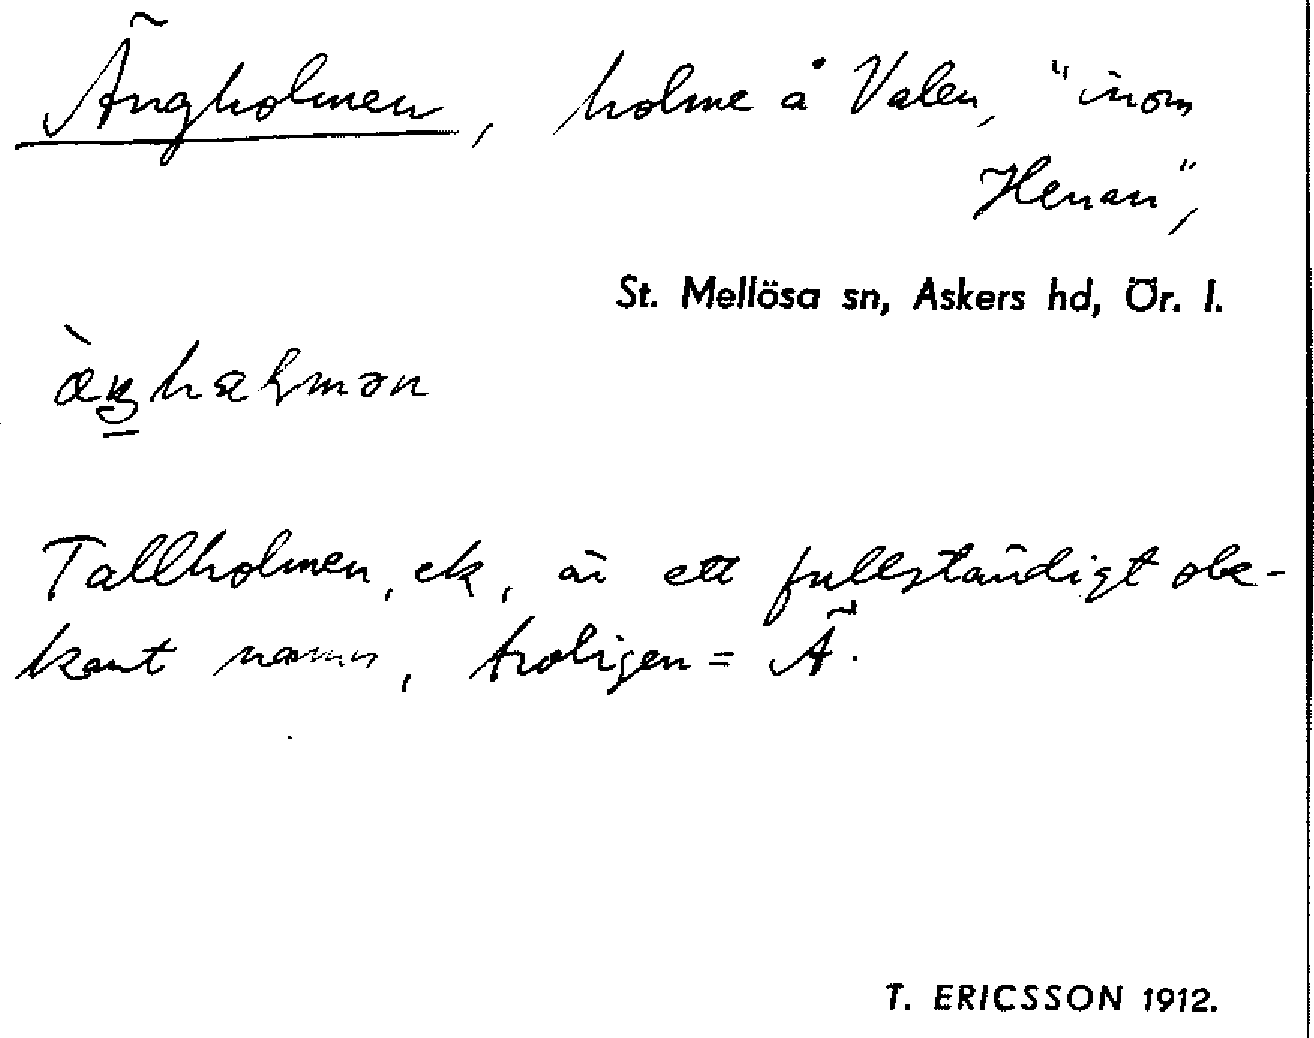 Ängholmen, holme å Valen, "inom
Henan",
St. Mellösa sn, Askers hd, Ör. l.
Tallholmen, ek, är ett fullständigt obe-
kant namn, troligen = Ä.
T. ERICSSON 1912.